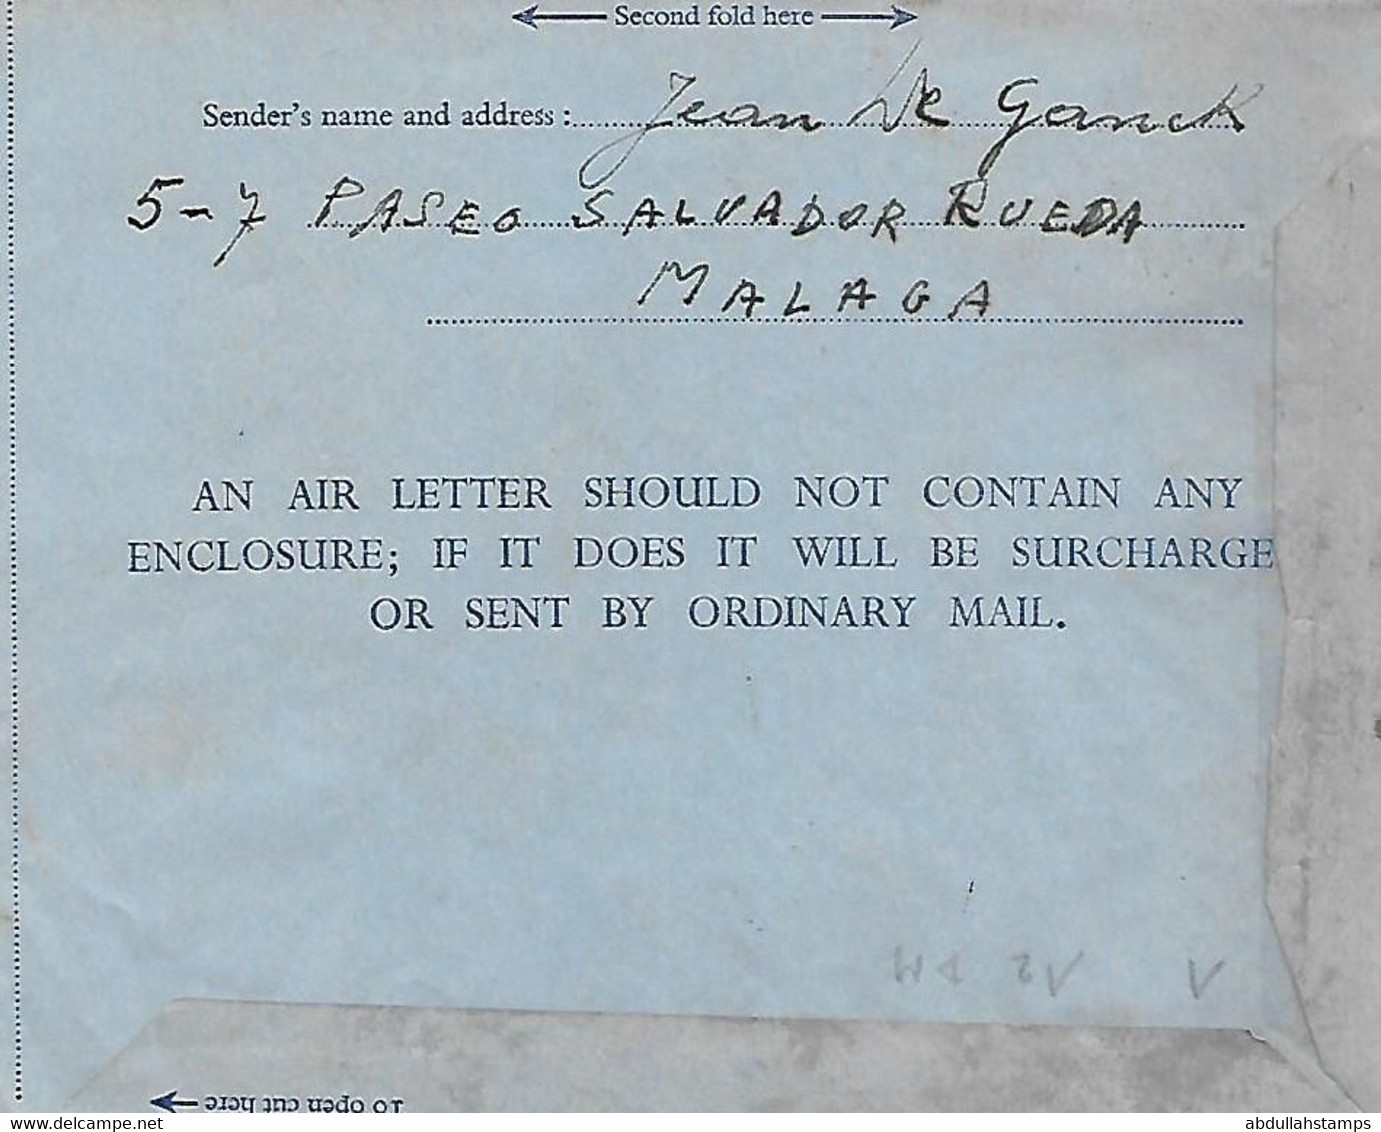 Second fold here
Sender's name and address : Jean De Ganck
5-7 PASEO SALVADOR RUEDA
MALAGA
AN AIR LETTER SHOULD NOT CONTAIN ANY
ENCLOSURE; IF IT DOES IT WILL BE SURCHARGE
OR SENT BY ORDINARY MAIL.
To open cut here
www.delcampe.net
abdullahstamps